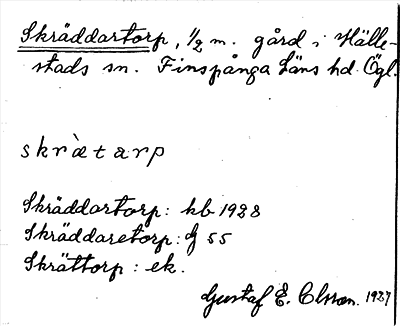 Skräddartorp, 1/2 m. gård i Hälle-
stads sn. Finspånga läns hd. Ögl.
skrὲtarp
Skräddartorp: kb 1928
Skräddaretorp: G 55
Skrättorp: ek.
Gustaf E. Olsson. 1927